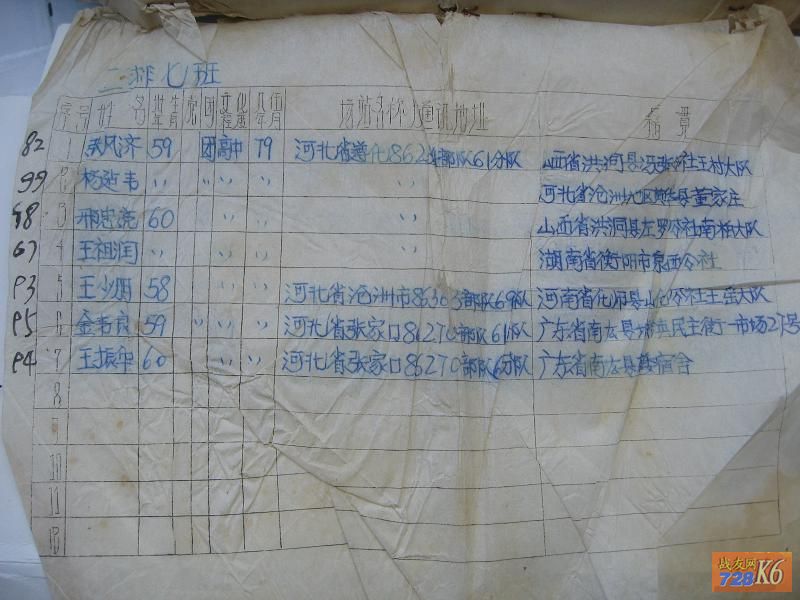 二排七班
序号 姓名 出生年月 党 团 文化程度 入伍年月 场站名称 通讯地址 籍贯
82 1 风济 59 团 高中 79 河北省遵化862 部队61分队 山西省洪洞县 公社王村大队
99 2 杨 韦 〃 〃 〃 〃 〃 河北省沧洲地区 县董家庄
68 3 邢忠亮 60 〃 〃 〃 山西省洪洞县左罗公社南柏大队
67 4 王祖润 〃 〃 〃 〃 〃 湖南省衡阳市泉西公社
93 5 王少 58 〃 〃 〃 河北省沧洲市86303部队69分队 河南省 县 公社 大队
95 6 金 良 59 〃 〃 〃 河北省张家口86270部队61分队 广东省南 县 民主街一市场27号
94 7 王振华 60 〃 〃 〃 河北省张家口86270部队6分队 广东省南 县 宿舍
8
9
10
11
12
战友网
728K6